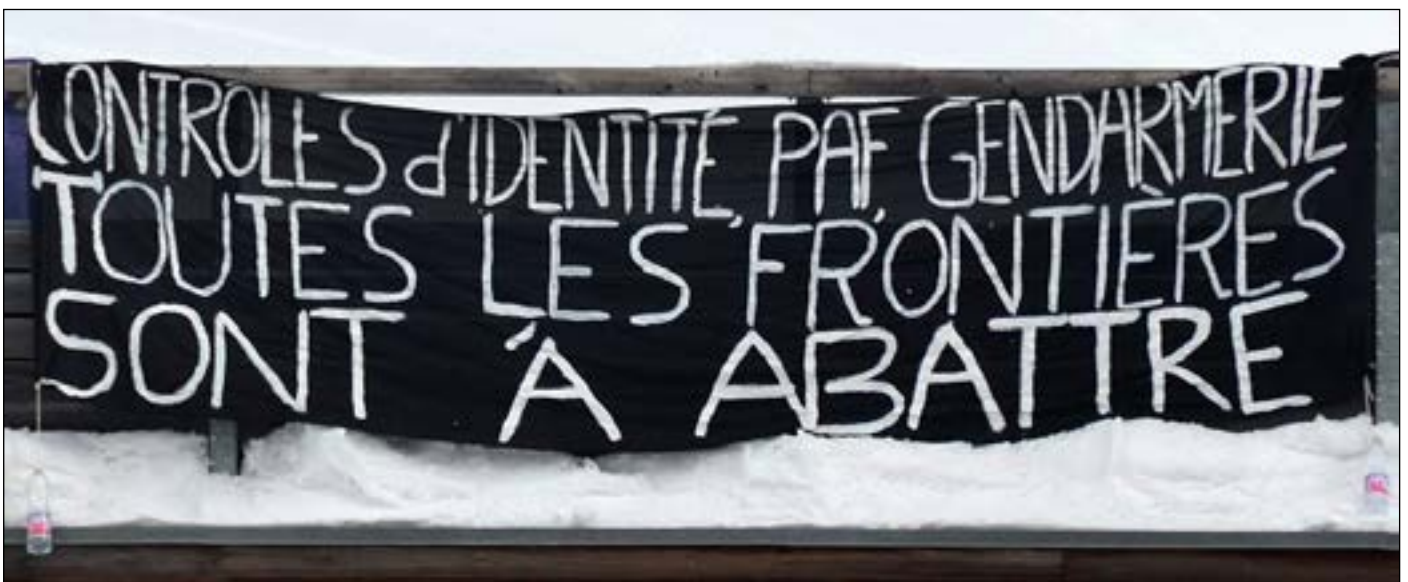 CONTROLES d'IDENTITÉ, PAF, GENDARMERIE
TOUTES LES FRONTIÈRES
SONT À ABATTRE